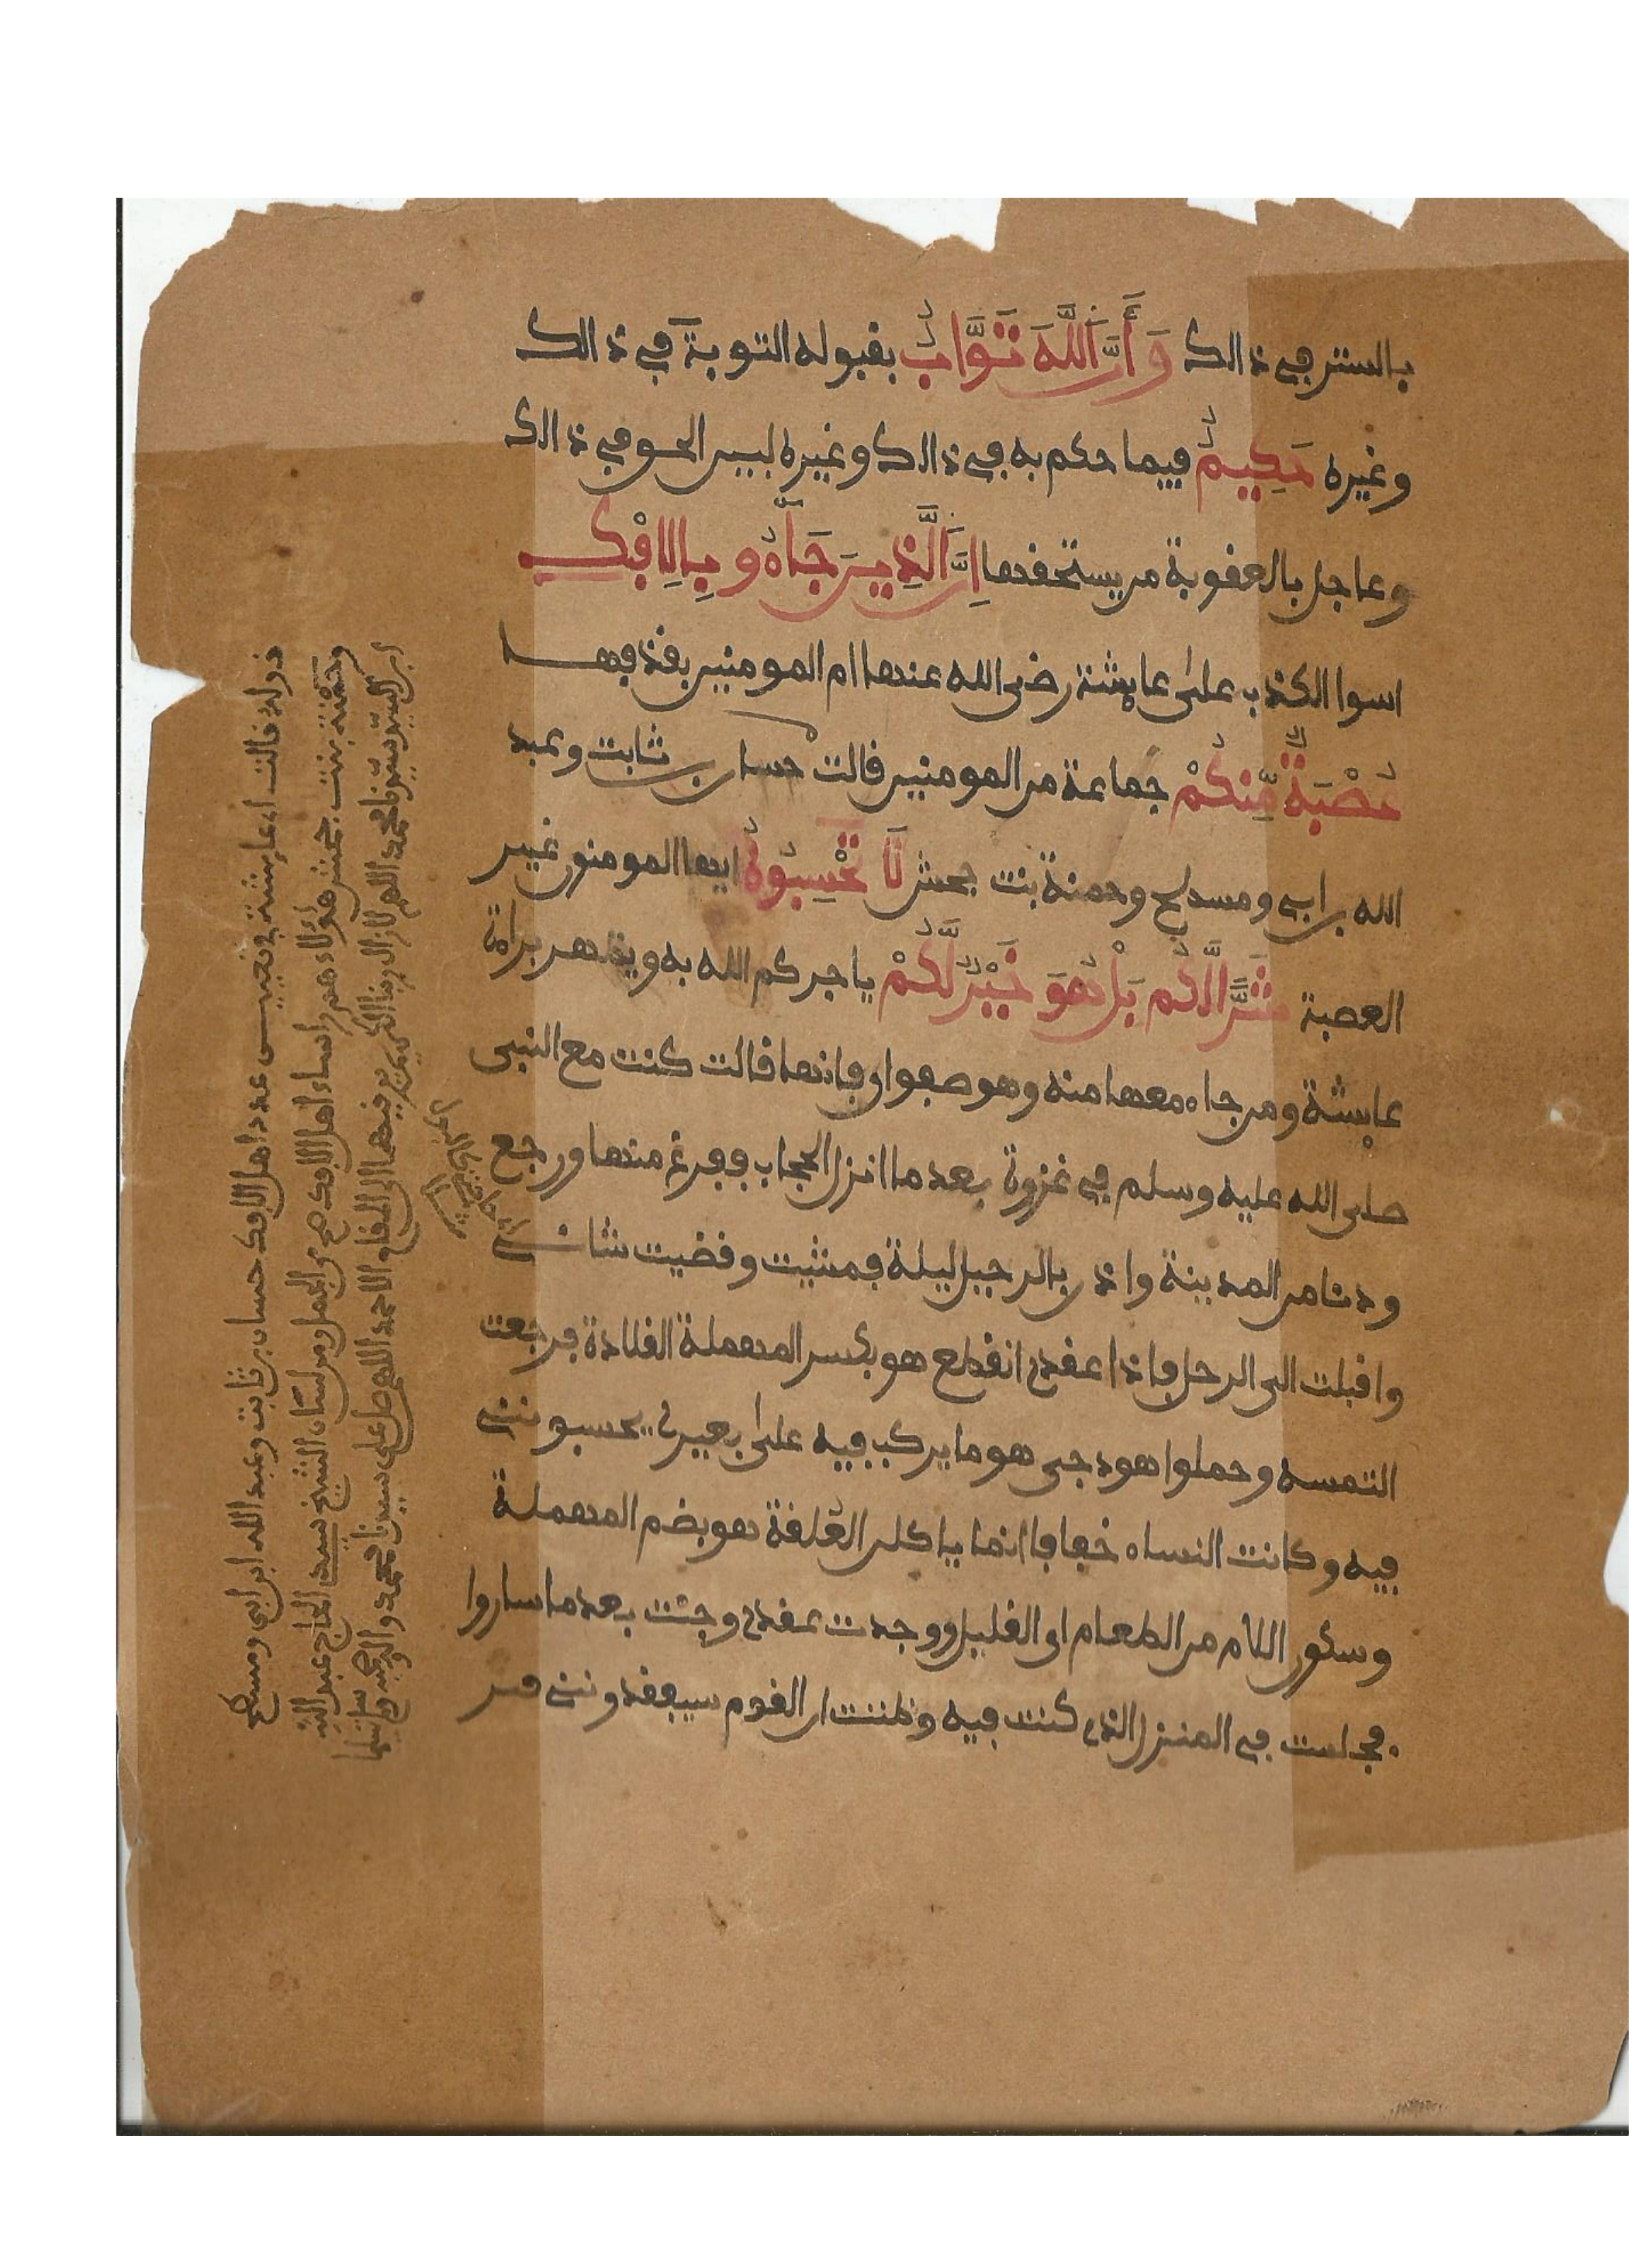 بالستر في ذالك وَأَنَّ اَللَّهَ تَوَّابٌ بقبوله التوبة في ذالك
وغيره حَكِيمٌ فيما حكم به في ذالك وغيره لبين الحق في ذالك
وعاجل بالعقوبة من يستحقها اِنَّ اَلَّذِينَ جَآءُو بِالِافْكِ
اسوا الكذب على عايشة رضى الله عنها ام المومنين بقذفها
عُصْبَةٌ مِّنكُمْ جماعة من المومنين قالت حسان بن ثابت وعبد
الله بن ابي ومسطح وحمنة بنت جحش لَا تَحْسِبُوهُ ايها المومنون غير
العصبة شَرّٗا لَّكُم بَلْ هُوَ خَيْرٌ لَّكُمْ ياجركم الله به ويظهر براءة
عايشة ومن جاء معها منه وهو صفوان فانها قالت كنت مع النبي
صلى الله عليه وسلم في غزوة بعد ما انزل الحجاب ففرغ منها ورجع
ودنا من المدينة واذن بالرحيل ليلة فمشيت وقضيت شاني
واقبلت الى الرحل فاذا عقدي انقطع هو بكسر المهملة القلادة فرجعت
التمسه وحملوا هودجي هو ما يركب فيه على بعيري يحسبونني
فيه وكانت النساء خفافا انما ياكلن العُلقة هو بضم المهملة
وسكون اللام من الطعام اى القليل ووجدت عقدي وجئت بعد ما ساروا
فجلست في المنزل الذي كنت فيه وظننت ان القوم سيفقدونني فير
قوله قالت اى عايشة في تعيين عدد اهل الافك حسان بن ثابت وعبد الله ابن ابي ومسطح
وحمنة بنت جحش هؤلاء هم راساء اهل الافك من الجمل ومن لسان الشيخ سيد الحاج عبد